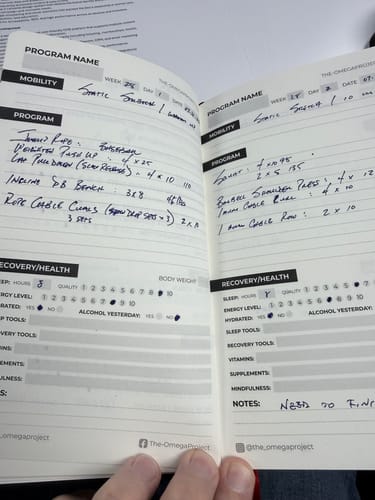 PROGRAM NAME
THE-OMEGAPROJECT
WEEK 25 DAY 1 DATE
MOBILITY
STATIC STRETCH /
PROGRAM
JUMP ROPE:
WEIGHTED PUSH UP: 4 x 25
LAT PULLDOWN (SLOW RELEASE): 4 x 10 110
INCLINE DB BENCH: 3x8
ROPE CABLE CURLS ( DROP SETS x 3) 2 x 10
3 SETS
RECOVERY/HEALTH
BODY WEIGHT
EEP: HOURS 8 QUALITY 1 2 3 4 5 6 7 8 10
ERGY LEVEL: 1 2 3 4 5 6 7 8 9 10
RATED: YES NO ALCOHOL YESTERDAY: YES NO
P TOOLS:
VERY TOOLS:
INS:
EMENTS:
ULNESS:
S:
_omegaproject
The-OmegaProject
PROGRAM NAME
THE-OMEGA
WEEK 25 DAY 2 DATE
MOBILITY
STATIC STRETCH / 10 m
PROGRAM
SQUAT: 4 x 095
2 x 5 135
BARBELL SHOULDER PRESS: 4 x 12
1 ARM CABLE CURL: 4 x 10
1 ARM CABLE ROW: 2 x 10
RECOVERY/HEALTH
SLEEP: HOURS 8 QUALITY 1 2 3 4 5 6
ENERGY LEVEL: 1 2 3 4 5 6 8 9 10
HYDRATED: YES NO ALCOHOL YEST
SLEEP TOOLS:
RECOVERY TOOLS:
VITAMINS:
SUPPLEMENTS:
MINDFULNESS:
NOTES: NEED TO FIN
@the_omegaproject